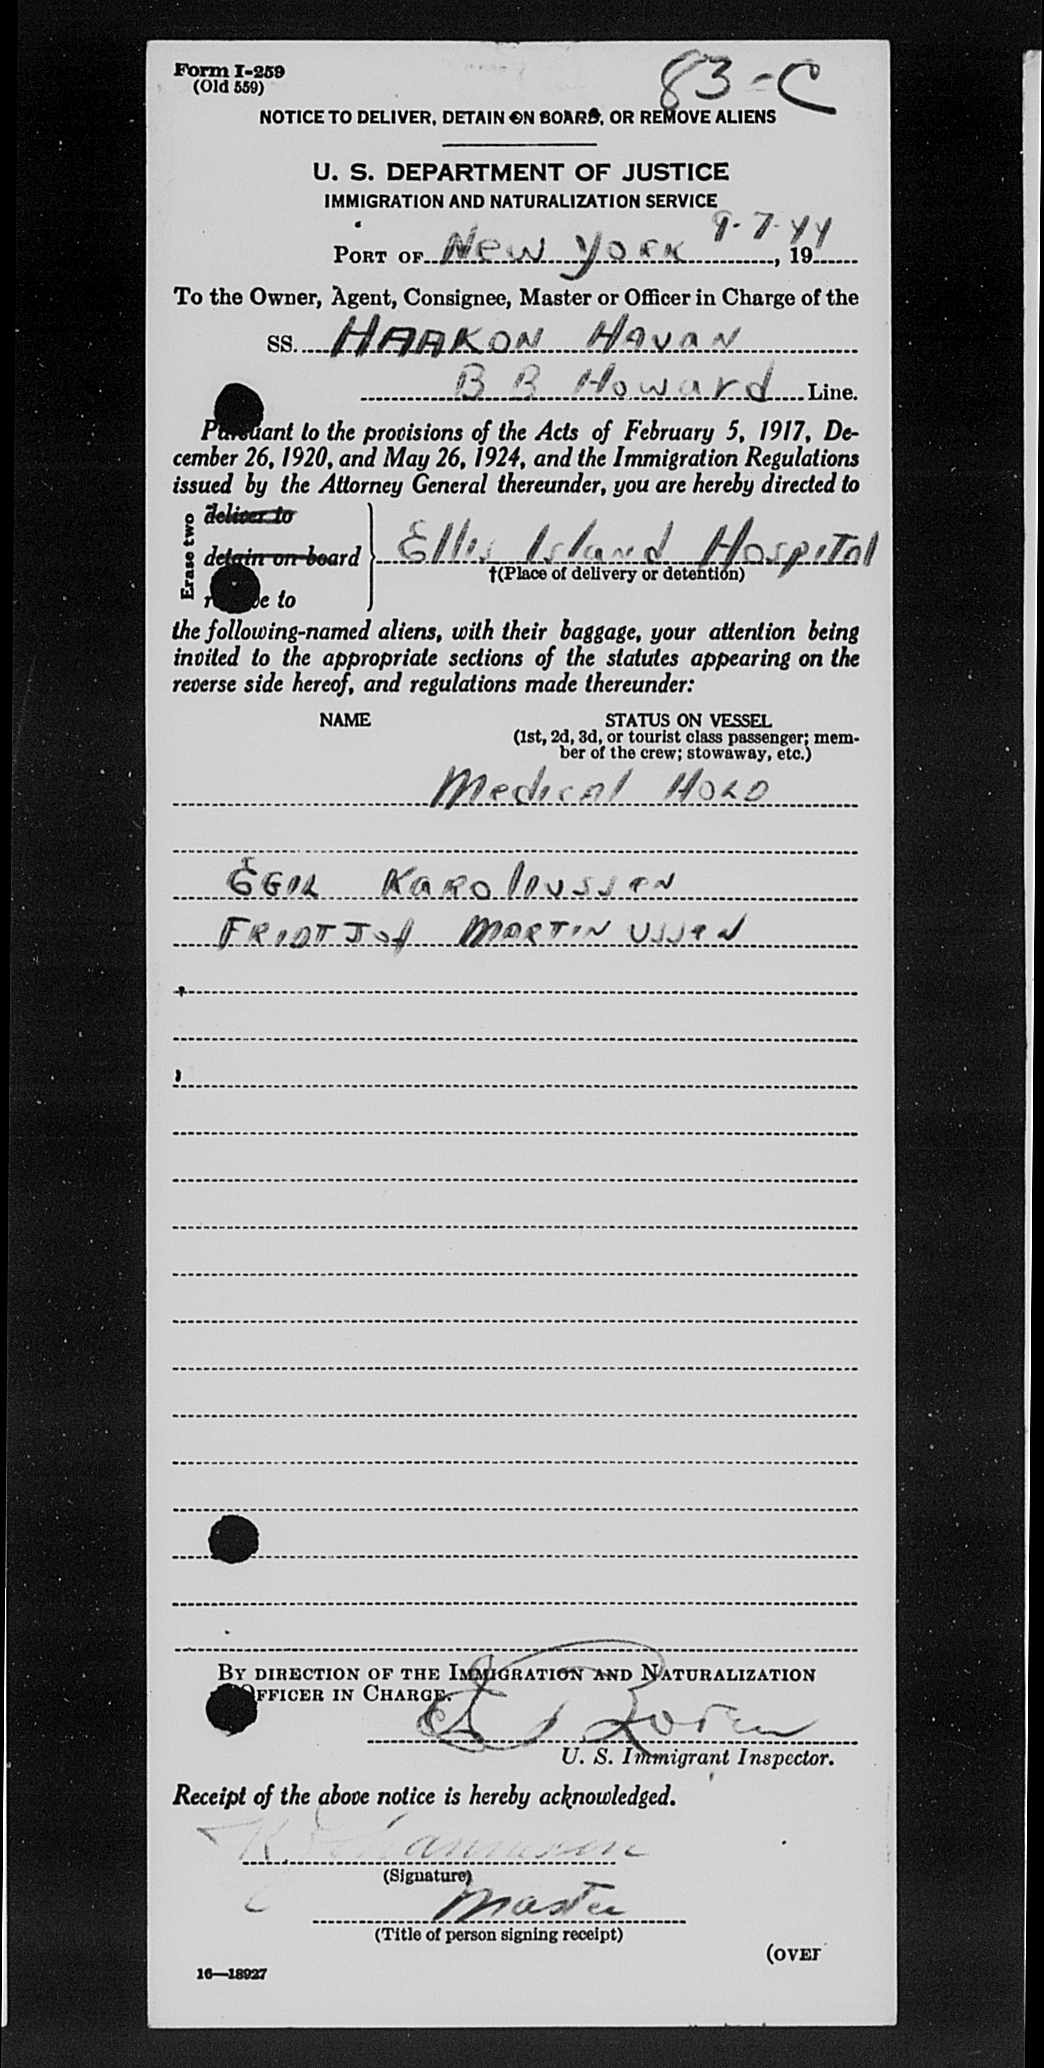 Form I-259
(Old 559)
83-C
NOTICE TO DELIVER, DETAIN ON BOARD, OR REMOVE ALIENS
U. S. DEPARTMENT OF JUSTICE
IMMIGRATION AND NATURALIZATION SERVICE
9-7-44
PORT OF New York, 19
To the Owner, Agent, Consignee, Master or Officer in Charge of the
SS. HAAKON HAVAN
B B Howard Line.
Pursuant to the provisions of the Acts of February 5, 1917, De-
cember 26, 1920, and May 26, 1924, and the Immigration Regulations
issued by the Attorney General thereunder, you are hereby directed to
Erase two
deliver to
detain on board
Ellis Island Hospital
†(Place of delivery or detention)
to
the following-named aliens, with their baggage, your attention being
invited to the appropriate sections of the statutes appearing on the
reverse side hereof, and regulations made thereunder:
NAME STATUS ON VESSEL
(1st, 2d, 3d, or tourist class passenger; mem-
ber of the crew; stowaway, etc.)
Medical HOLD
EGIL KAROliUSSEN
FRIDTJof MARTINUSSEN
BY DIRECTION OF THE IMMIGRATION AND NATURALIZATION
OFFICER IN CHARGE.
U. S. Immigrant Inspector.
Receipt of the above notice is hereby acknowledged.
(Signature)
Master
(Title of person signing receipt)
(OVER
16—18927